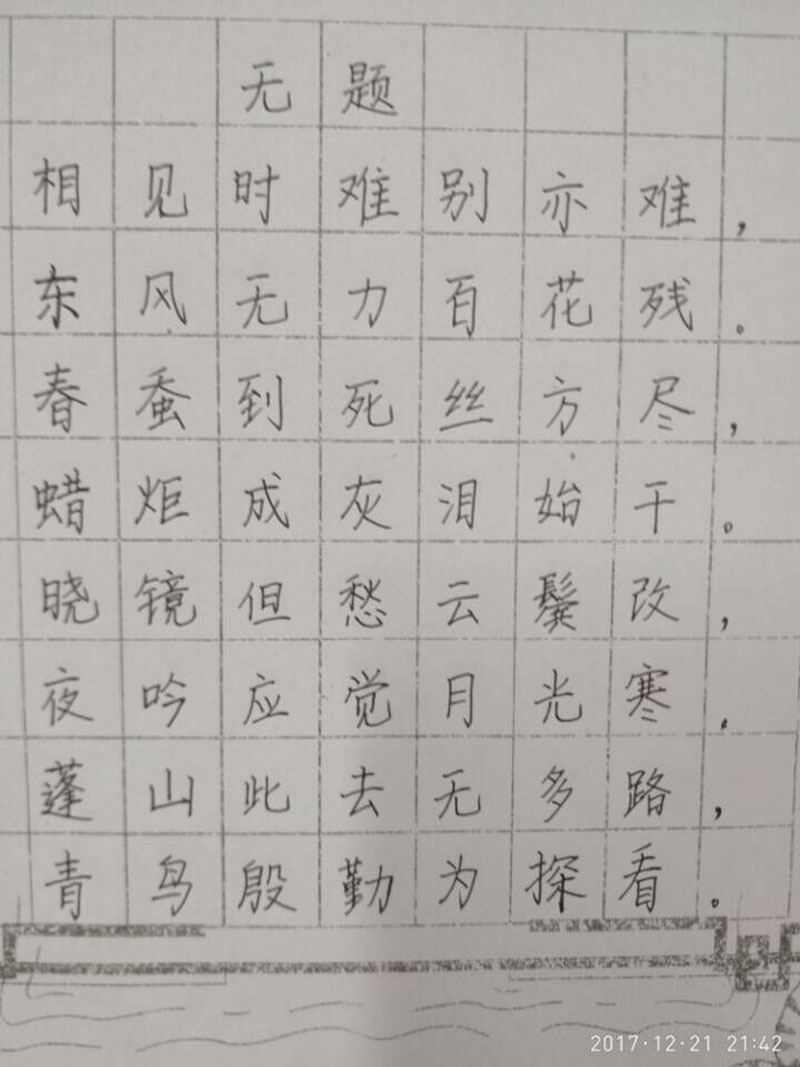 无题
相见时难别亦难，
东风无力百花残。
春蚕到死丝方尽，
蜡炬成灰泪始干。
晓镜但愁云鬓改，
夜吟应觉月光寒.
蓬山此去无多路，
青鸟殷勤为探看。
2017·12·21 21:42